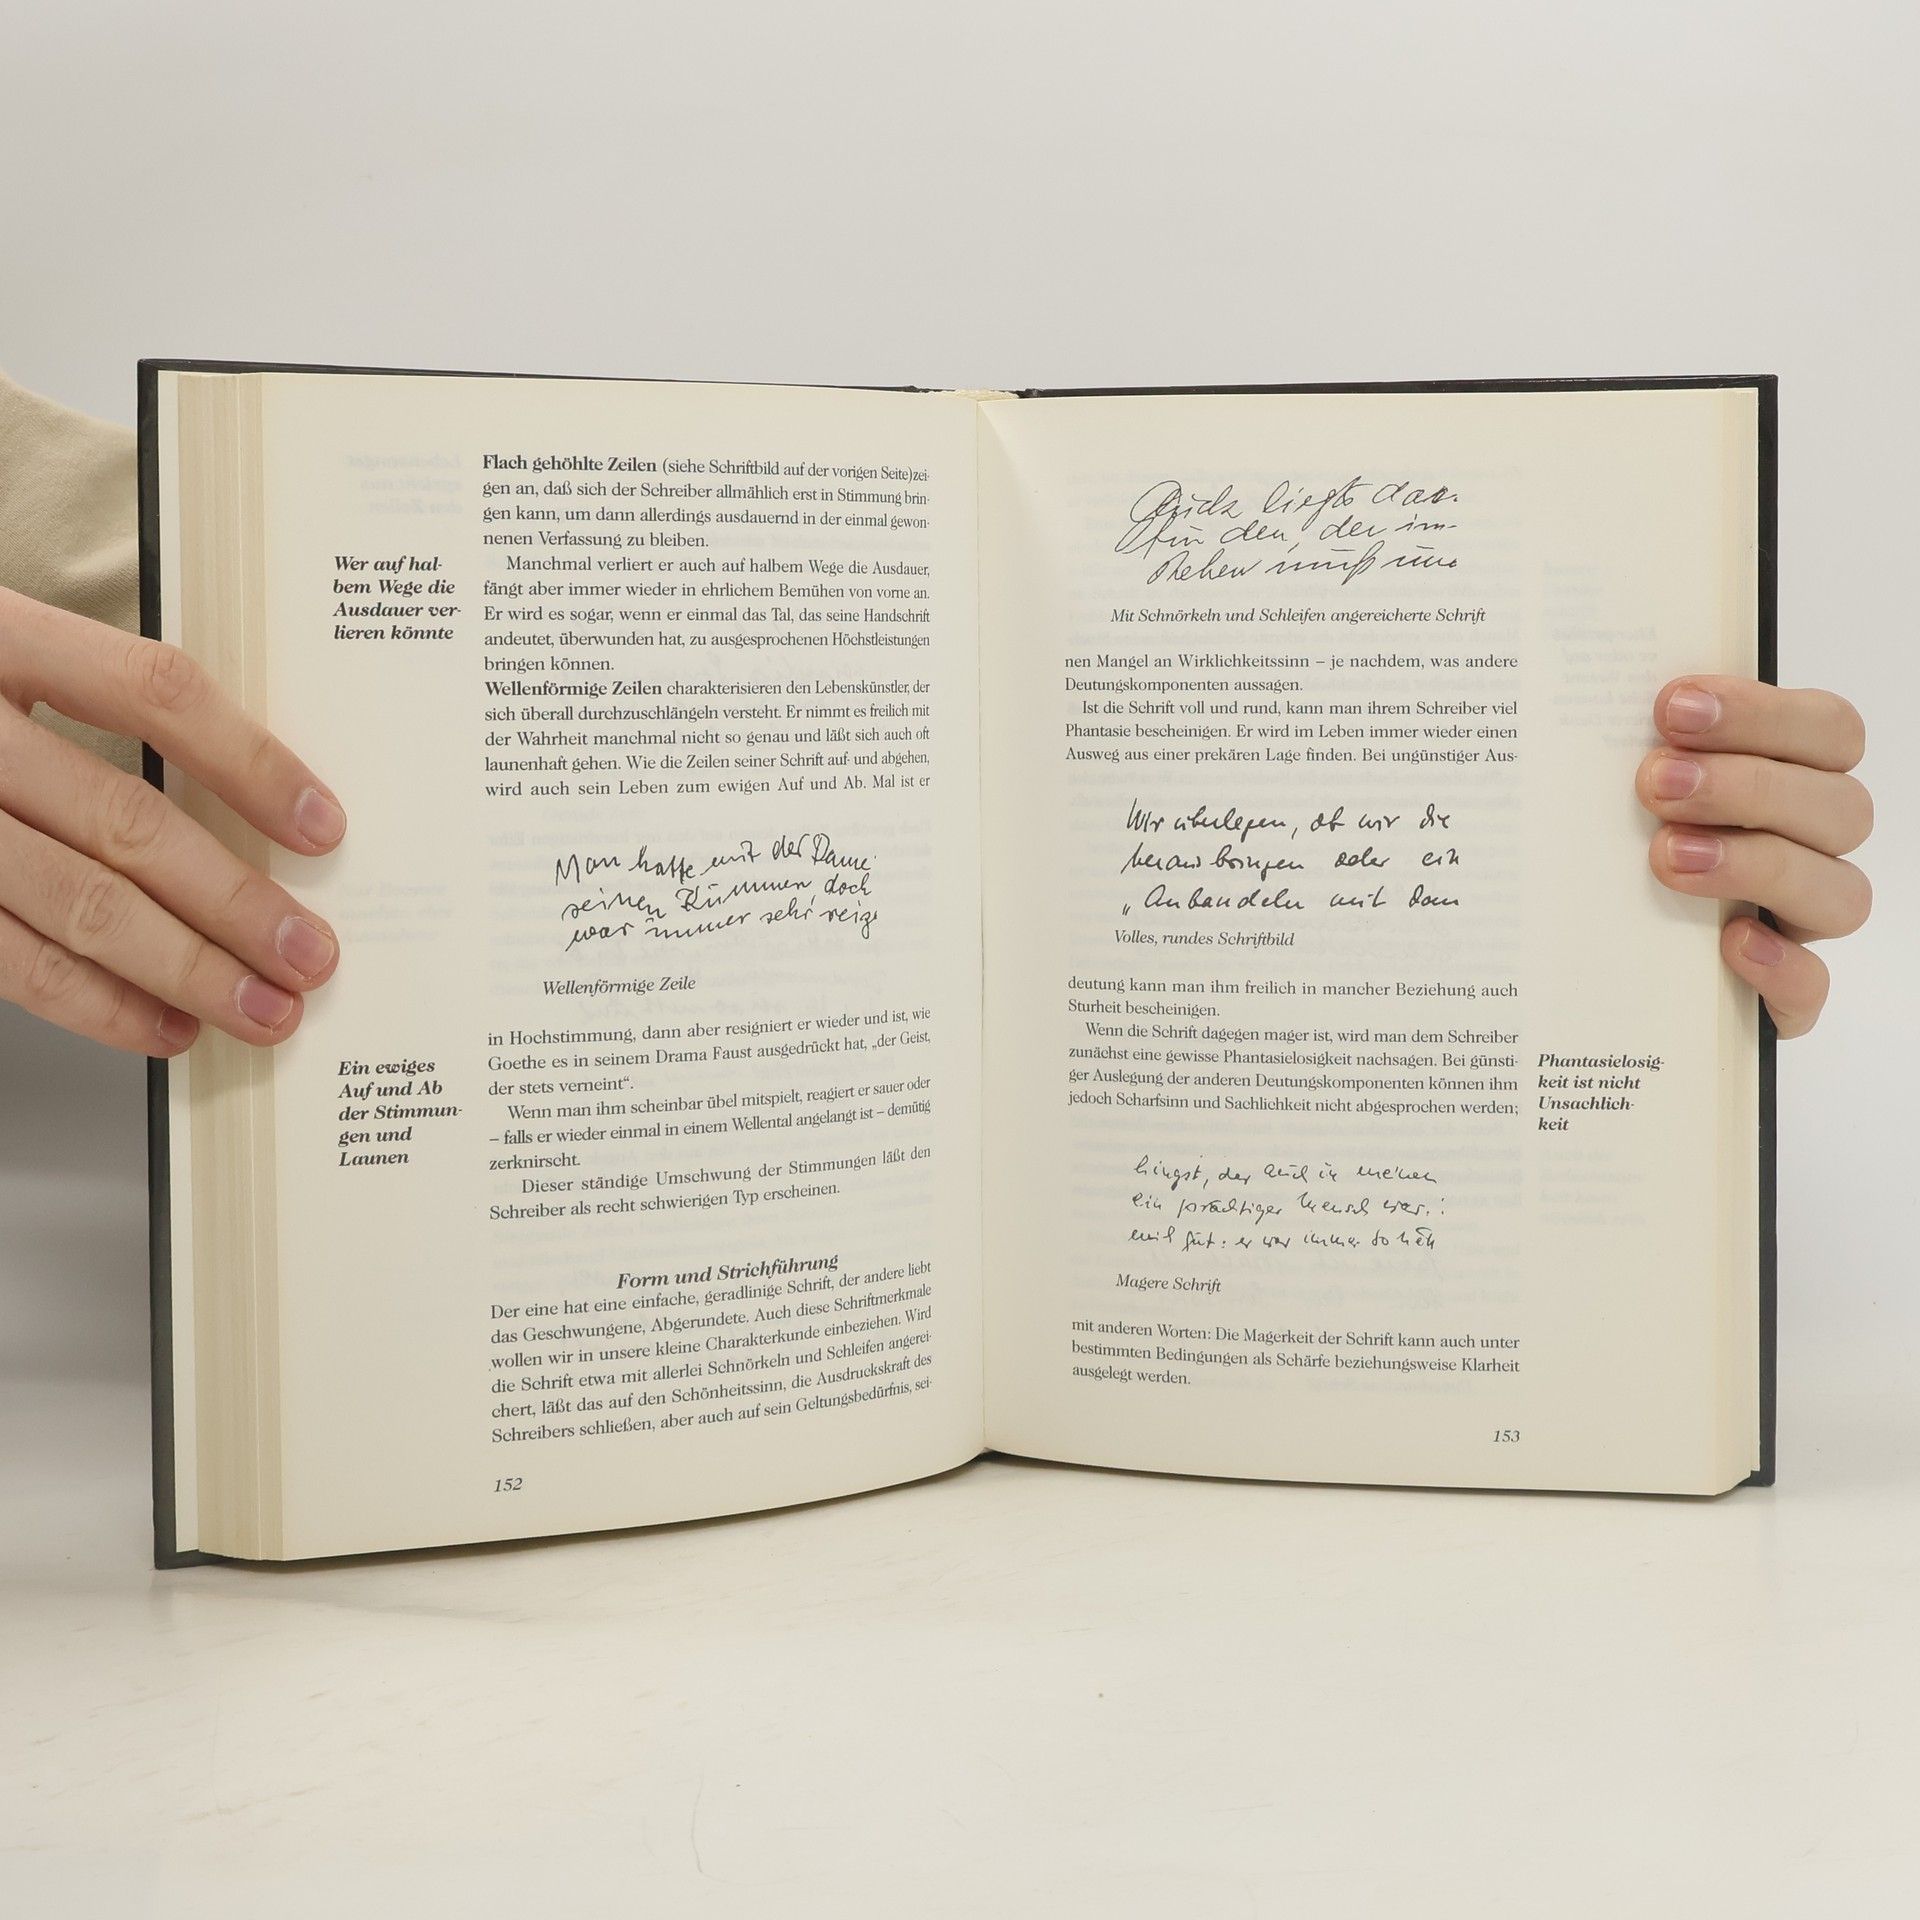 Flach gehöhlte Zeilen (siehe Schriftbild auf der vorigen Seite)zei-
gen an, daß sich der Schreiber allmählich erst in Stimmung brin-
gen kann, um dann allerdings ausdauernd in der einmal gewon-
nenen Verfassung zu bleiben.
Wer auf hal-
bem Wege die
Ausdauer ver-
lieren könnte
Manchmal verliert er auch auf halbem Wege die Ausdauer,
fängt aber immer wieder in ehrlichem Bemühen von vorne an.
Er wird es sogar, wenn er einmal das Tal, das seine Handschrift
andeutet, überwunden hat, zu ausgesprochenen Höchstleistungen
bringen können.
Wellenförmige Zeilen charakterisieren den Lebenskünstler, der
sich überall durchzuschlängeln versteht. Er nimmt es freilich mit
der Wahrheit manchmal nicht so genau und läßt sich auch oft
launenhaft gehen. Wie die Zeilen seiner Schrift auf- und abgehen,
wird auch sein Leben zum ewigen Auf und Ab. Mal ist er
Man hatte mit der Dame
seinen Kummer, doch
war immer sehr reiz
Wellenförmige Zeile
in Hochstimmung, dann aber resigniert er wieder und ist, wie
Goethe es in seinem Drama Faust ausgedrückt hat, „der Geist,
der stets verneint“.
Ein ewiges
Auf und Ab
der Stimmun-
gen und
Launen
Wenn man ihm scheinbar übel mitspielt, reagiert er sauer oder
– falls er wieder einmal in einem Wellental angelangt ist – demütig
zerknirscht.
Dieser ständige Umschwung der Stimmungen läßt den
Schreiber als recht schwierigen Typ erscheinen.
Form und Strichführung
Der eine hat eine einfache, geradlinige Schrift, der andere liebt
das Geschwungene, Abgerundete. Auch diese Schriftmerkmale
wollen wir in unsere kleine Charakterkunde einbeziehen. Wird
die Schrift etwa mit allerlei Schnörkeln und Schleifen angerei-
chert, läßt das auf den Schönheitssinn, die Ausdruckskraft des
Schreibers schließen, aber auch auf sein Geltungsbedürfnis, sei-
152
liegts dar.
den, der im-
stehen muß
Mit Schnörkeln und Schleifen angereicherte Schrift
nen Mangel an Wirklichkeitssinn – je nachdem, was andere
Deutungskomponenten aussagen.
Ist die Schrift voll und rund, kann man ihrem Schreiber viel
Phantasie bescheinigen. Er wird im Leben immer wieder einen
Ausweg aus einer prekären Lage finden. Bei ungünstiger Aus-
Wir überlegen, ob wir die
herausbringen oder ein
„Anbandeln mit dem
Volles, rundes Schriftbild
deutung kann man ihm freilich in mancher Beziehung auch
Sturheit bescheinigen.
Wenn die Schrift dagegen mager ist, wird man dem Schreiber
zunächst eine gewisse Phantasielosigkeit nachsagen. Bei günsti-
ger Auslegung der anderen Deutungskomponenten können ihm
jedoch Scharfsinn und Sachlichkeit nicht abgesprochen werden;
Phantasielosig-
keit ist nicht
Unsachlich-
keit
hingst, der auch in meinen
ein prächtiger Mensch war.
gut: er war immer so
Magere Schrift
mit anderen Worten: Die Magerkeit der Schrift kann auch unter
bestimmten Bedingungen als Schärfe beziehungsweise Klarheit
ausgelegt werden.
153